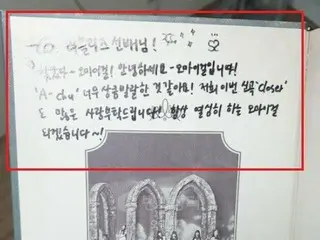 러블리즈 선배님!
오마이걸! 안녕하세요 - 오마이걸입니다!
'A-chu' 너무 상큼발랄한 것 같아요! 저희 이번 신곡 'Closer'
도 많은 사랑 부탁드립니다! 항상 열심히 하는 오마이걸
되겠습니다~!